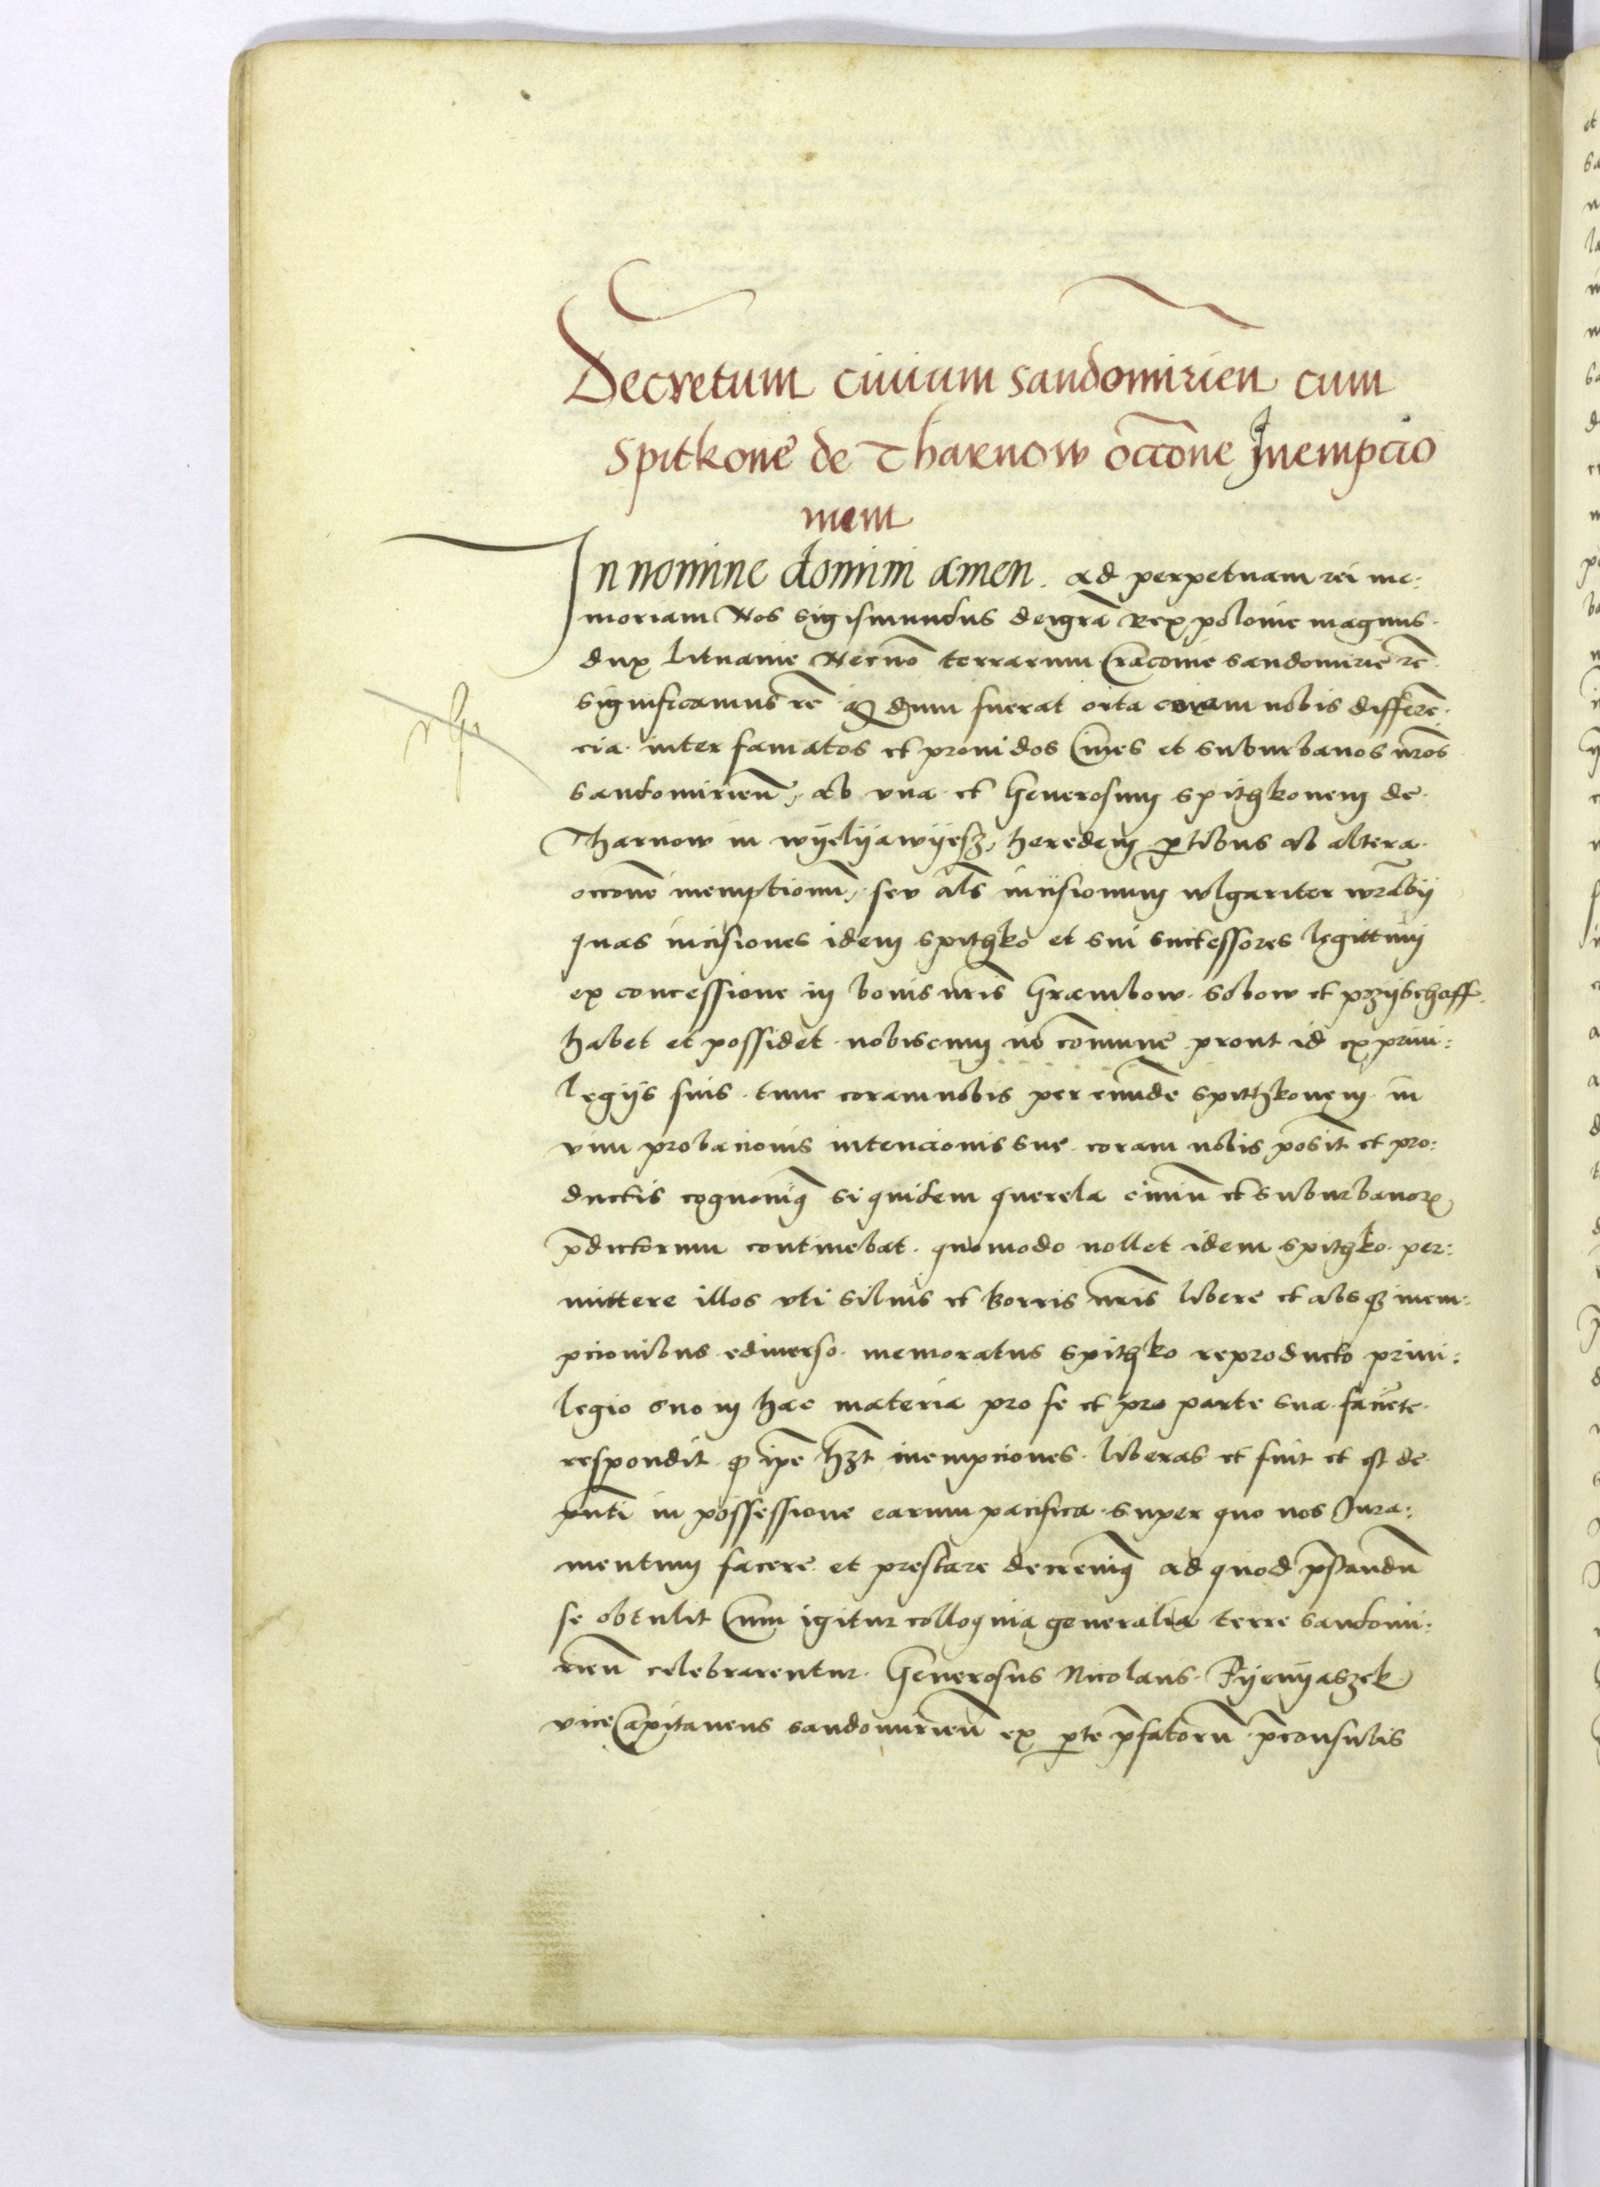 Decretum ciuium sandomirien cum
Spitkone de Tharnow occōne Inempcio
nem
In nomine domini amen. ad perpetuam rei me:
moriam Nos Sigismundus dei grā Rex polonie magnus
dux lituanie Necnō terrarum Cracouie sandomirie rē
significamus rē q dum fuerat orta coram nobis differē
cia inter famatos et prouidos Ciues et suburbanos nr̄os
sandomirien̄, ab vna et Generosum spithkonem de
Tharnow in wyelyawyesz, heredem ꝑtibus ab altera
occone inemptionū, seu al̄s incisionum wlgariter wrąbij
quas incisiones idem spithko et sui successores legittimi
ex concessione in bonis nr̄is Grambow Sobow et pzybchoff
habet et possidet nobiscum ... comune prout id ex priui:
legijs suis tunc coram nobis per eundē spithkonem in
vim probacionis intencionis sue coram nobis posit̄ et pro:
ductis cognouimꝰ siquidem querela ciuiū et suburbanoꝝ
p̄dictorum continebat quomodo nollet idem spithko per:
mittere illos vti siluis et borris nr̄is libere et absqꝫ inem:
pcionibus ediuerso memoratus spithko reproducto priui:
legio suo in hac materia pro se et pro parte sua faciēte
respondit ꝙ ip̄e hꝫt inempciones liberas et fuit et est de
pn̄ti in possessione earum pacifica super quo nos Iura:
mentum facere et prestare decreuimꝰ ad quod p̄standū
se obtulit Cum igitur colloquia generalia terre sandomi:
rien̄ celebrarentur Generosus Nicolaus Pyenyaszek
viceCapitaneus sandomirien̄ ex ꝑte p̄fatorū p̄consulis